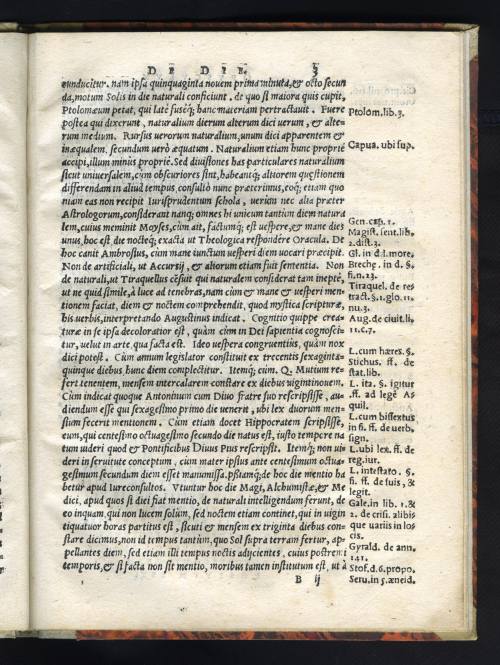 DE DIE. 3
conducitur. nam ipsa quinquaginta novem prima minuta, & octo secun
da, motum Solis in die naturali conficiunt. de quo si maiora quis cupit,
Ptolomæum petat, qui latè fuseq; hanc materiam pertractauit. Fuere
postea qui dixerunt, naturalium dierum alterum dici uerum, & alte-
rum medium. Rursus uerorum naturalium, unum dici apparentem &
inæqualem. secundum uerò æquatum. Naturalium etiam hunc propriè
accipi, illum minùs propriè. Sed diuisiones has particulares naturalium
sicut uniuersalem, cùm obscuriores sint, habeantq; altiorem quæstionem
differendam in aliud tempus, consultò nunc præterimus, eoq; etiam quo
niam eas non recipit Iurisprudentum schola, uerùm nec alia præter
Astrologorum, considerant nanq; omnes hi unicum tantùm diem natura
lem, cuius meminit Moyses, cùm ait, factumq; est uespere, & mane dies
unus. hoc est die nocteq; exacta ut Theologica respondêre Oracula. De
hoc canit Ambrosius, cùm mane iunctum uesperi diem uocari præcepit.
Non de artificiali, ut Accursij, & aliorum etiam fuit sententia. Non
de naturali, ut Tiraquellus cẽsuit qui naturalem considerat tam ineptè,
ut ne quid simile, à luce ad tenebras, nam cùm & mane & uesperi men-
tionem faciat, diem & noctem comprehendit, quod mystica scripturæ,
his uerbis, interpretando Augustinus indicat. Cognitio quippe crea-
turæ in se ipsa decoloratior est, quàm cùm in Dei sapientia cognosci-
tur, uelut in arte, qua facta est. Ideo uespera congruentiùs, quàm nox
dici potest. Cùm annum legislator constituit ex trecentis sexaginta-
quinque diebus, hunc diem complectitur. Itemq; cùm. Q. Mutium re-
fert tenentem, mensem intercalarem constare ex diebus uigintinouem.
Cùm indicat quoque Antoninum cum Diuo fratre suo rescripsisse, au-
diendum esse qui sexagesimo primo die uenerit, ubi lex duorum men-
sium fecerit mentionem. Cùm etiam docet Hippocratem scripsisse,
eum, qui centesimo octuagesimo secundo die natus est, iusto tempore na
tum uideri quod & Pontificibus Diuus Pius rescripsit. Itemq; non ui-
deri in seruitute conceptum, cùm mater ipsius ante centesimum octua-
gesimum secundum diem esset manumissa. pſtamq; de hoc die mentio ha
betur apud iureconsultos. Vtuntur hoc die Magi, Alchumistæ, & Me
dici, apud quos si diei fiat mentio, de naturali intelligendum ferunt, de
eo inquam, qui non lucem solùm, sed noctem etiam continet, qui in uigin
tiquatuor horas partitus est, sicuti & mensem ex triginta diebus con-
stare dicimus, non id tempus tantùm, quo Sol supra terram fertur, ap-
pellantes diem, sed etiam illi tempus noctis adijcientes, cuius postremi
temporis, & si facta non sit mentio, moribus tamen institutum est, ut à
B ij
Ptolom. lib. 3.
Capua. ubi sup.
Gen. cap. 1.
Magist. sent. lib.
2. dist. 3.
Gl. in d. l. more.
Breche. in d. §.
fi. n. 13.
Tiraquel. de re
tract. §. 1. glo. 11.
nu. 3.
Aug. de ciuit. li.
11. c. 7.
L. cum hæres. §.
Stichus. ff. de
stat. lib.
L. ita. §. igitur
.ff. ad legẽ A
quil.
L. cum bissextus
in fi. ff. de uerb.
sign.
L. ubi lex. ff. de
reg. iur.
L. intestato. §.
fi. ff. de suis, &
legit.
Gale. in lib. 1. &
2. de crisi. alibis
que uariis in lo
cis.
Gyrald. de ann.
141.
Stof. d. 6. propo.
Seru. in 5. æneid.